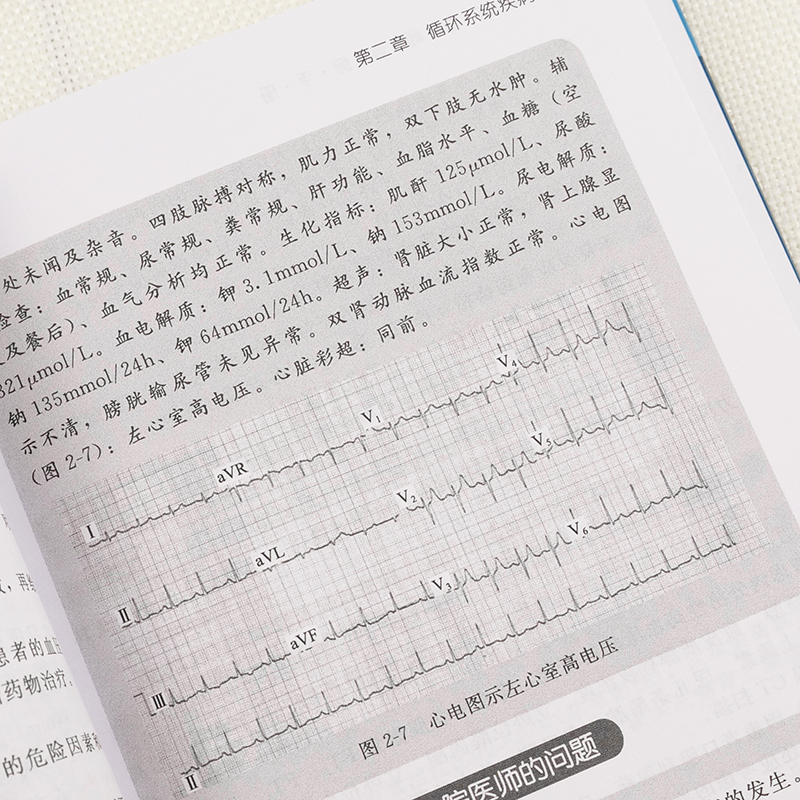 第二章 循环系统疾病
处未闻及杂音。四肢脉搏对称，肌力正常，双下肢无水肿。辅
检查：血常规、尿常规、粪常规、肝功能、血脂水平、血糖（空
及餐后）、血气分析均正常。生化指标：肌酐 125μmol/L、尿酸
321μmol/L。血电解质：钾 3.1mmol/L、钠 153mmol/L。尿电解质：
钠 135mmol/24h、钾 64mmol/24h。超声：肾脏大小正常，肾上腺显
示不清，膀胱输尿管未见异常。双肾动脉血流指数正常。心电图
（图 2-7）：左心室高电压。心脏彩超：同前。
I aVR V1 V4
II aVL V2 V5
III aVF V3 V6
II
图 2-7 心电图示左心室高电压
院医师的问题
的发生。
患者的血压
药物治疗
的危险因素